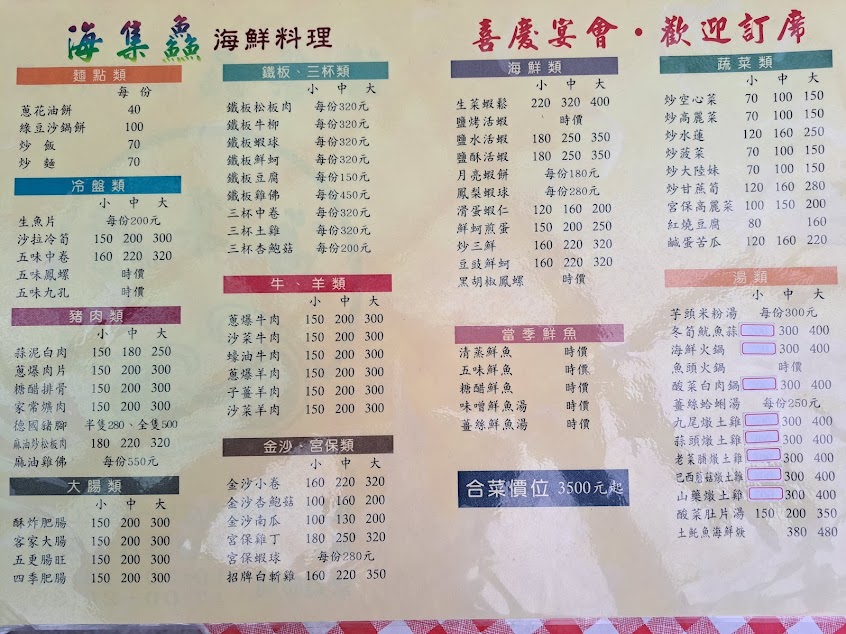 海集鱻 海鮮料理
喜慶宴會・歡迎訂席
麵點類
每份
蔥花油餅 40
綠豆沙鍋餅 100
炒飯 70
炒麵 70
冷盤類
小 中 大
生魚片 每份200元
沙拉冷筍 150 200 300
五味中卷 160 220 320
五味鳳螺 時價
五味九孔 時價
豬肉類
小 中 大
蒜泥白肉 150 180 250
蔥爆肉片 150 200 300
糖醋排骨 150 200 300
家常爌肉 150 200 300
德國豬腳 半隻280、全隻500
麻油炒松板肉 180 220 320
麻油雞佛 每份550元
大腸類
小 中 大
酥炸肥腸 150 200 300
客家大腸 150 200 300
五更腸旺 150 200 300
四季肥腸 150 200 300
鐵板、三杯類
小 中 大
鐵板松板肉 每份320元
鐵板牛柳 每份320元
鐵板蝦球 每份320元
鐵板鮮蚵 每份320元
鐵板豆腐 每份150元
鐵板雞佛 每份450元
三杯中卷 每份320元
三杯土雞 每份320元
三杯杏鮑菇 每份200元
牛、羊類
小 中 大
蔥爆牛肉 150 200 300
沙菜牛肉 150 200 300
蠔油牛肉 150 200 300
蔥爆羊肉 150 200 300
子薑羊肉 150 200 300
沙菜羊肉 150 200 300
金沙、宮保類
小 中 大
金沙小卷 160 220 320
金沙杏鮑菇 100 160 200
金沙南瓜 100 130 200
宮保雞丁 180 250 320
宮保蝦球 每份280元
招牌白斬雞 160 220 350
海鮮類
小 中 大
生菜蝦鬆 220 320 400
鹽烤活蝦 時價
鹽水活蝦 180 250 350
鹽酥活蝦 180 250 350
月亮蝦餅 每份180元
鳳梨蝦球 每份280元
滑蛋蝦仁 120 160 200
鮮蚵煎蛋 150 200 250
炒三鮮 160 220 320
豆豉鮮蚵 160 220 320
黑胡椒鳳螺 時價
當季鮮魚
清蒸鮮魚 時價
五味鮮魚 時價
糖醋鮮魚 時價
味噌鮮魚湯 時價
薑絲鮮魚湯 時價
合菜價位 3500元起
蔬菜類
小 中 大
炒空心菜 70 100 150
炒高麗菜 70 100 150
炒水蓮 120 160 250
炒菠菜 70 100 150
炒大陸妹 70 100 150
炒甘蔗筍 120 160 280
宮保高麗菜 100 150 200
紅燒豆腐 80 160
鹹蛋苦瓜 120 160 220
湯類
小 中 大
芋頭米粉湯 每份300元
冬筍魷魚蒜 300 400
海鮮火鍋 300 400
魚頭火鍋 時價
酸菜白肉鍋 300 400
薑絲蛤蜊湯 每份250元
九尾燉土雞 300 400
蒜頭燉土雞 300 400
老菜脯燉土雞 300 400
巴西蘑菇燉土雞 300 400
山藥燉土雞 300 400
酸菜肚片湯 150 200 350
土魠魚海鮮焿 380 480